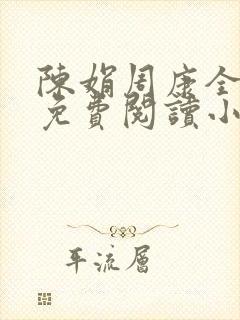 陳娟周康全
免費閱讀小
平流層